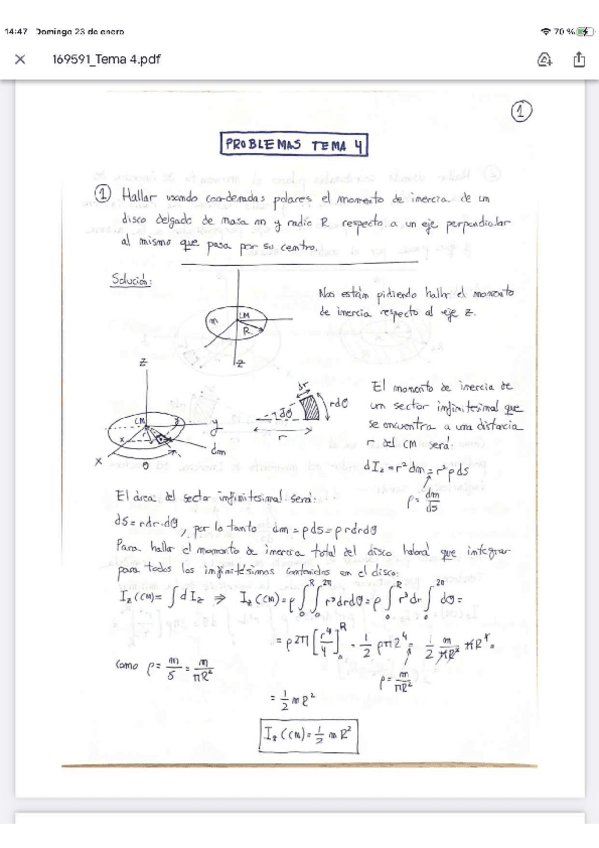 14:47 Domingo 23 de enero 70 %
169591_Tema 4.pdf
1
PROBLEMAS TEMA 4
1 Hallar usando coordenadas polares el momento de inercia de un
disco delgado de masa m y radio R respecto a un eje perpendicular
al mismo que pasa por su centro.
Solución:
Nos están pidiendo hallar el momento
de inercia respecto al eje z.
m CM R
z
z
CM y
x
dm
θ
dr
dθ rdθ
r
El momento de inercia de
un sector infinitesimal que
se encuentra a una distancia
r del CM será:
dIz = r² dm = r² ρ ds
ρ = dm/ds
El área del sector infinitesimal será:
ds = rdr·dθ, por lo tanto dm = ρds = ρrdrdθ
Para hallar el momento de inercia total del disco habrá que integrar
para todos los infinitésimos contenidos en el disco:
Iz (CM) = ∫dIz ⇒ Iz (CM) = ρ∫₀ᴿ∫₀²π r³drdθ = ρ∫₀ᴿ r³dr ∫₀²π dθ =
= ρ2π [r⁴/4]₀ᴿ = 1/2 ρπR⁴ = 1/2 m/πR² πR⁴ =
como ρ = m/S = m/πR²
ρ = m/πR²
= 1/2 mR²
Iz (CM) = 1/2 mR²